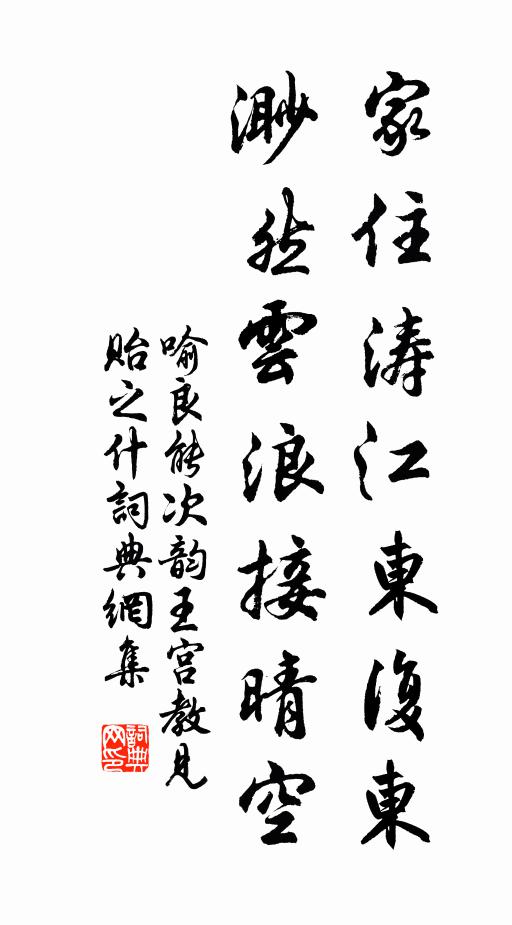 家住涛江東復東
渺然雲浪接晴空
喻良能次韵王宫教見
貽之什詞典網集
詞典网印